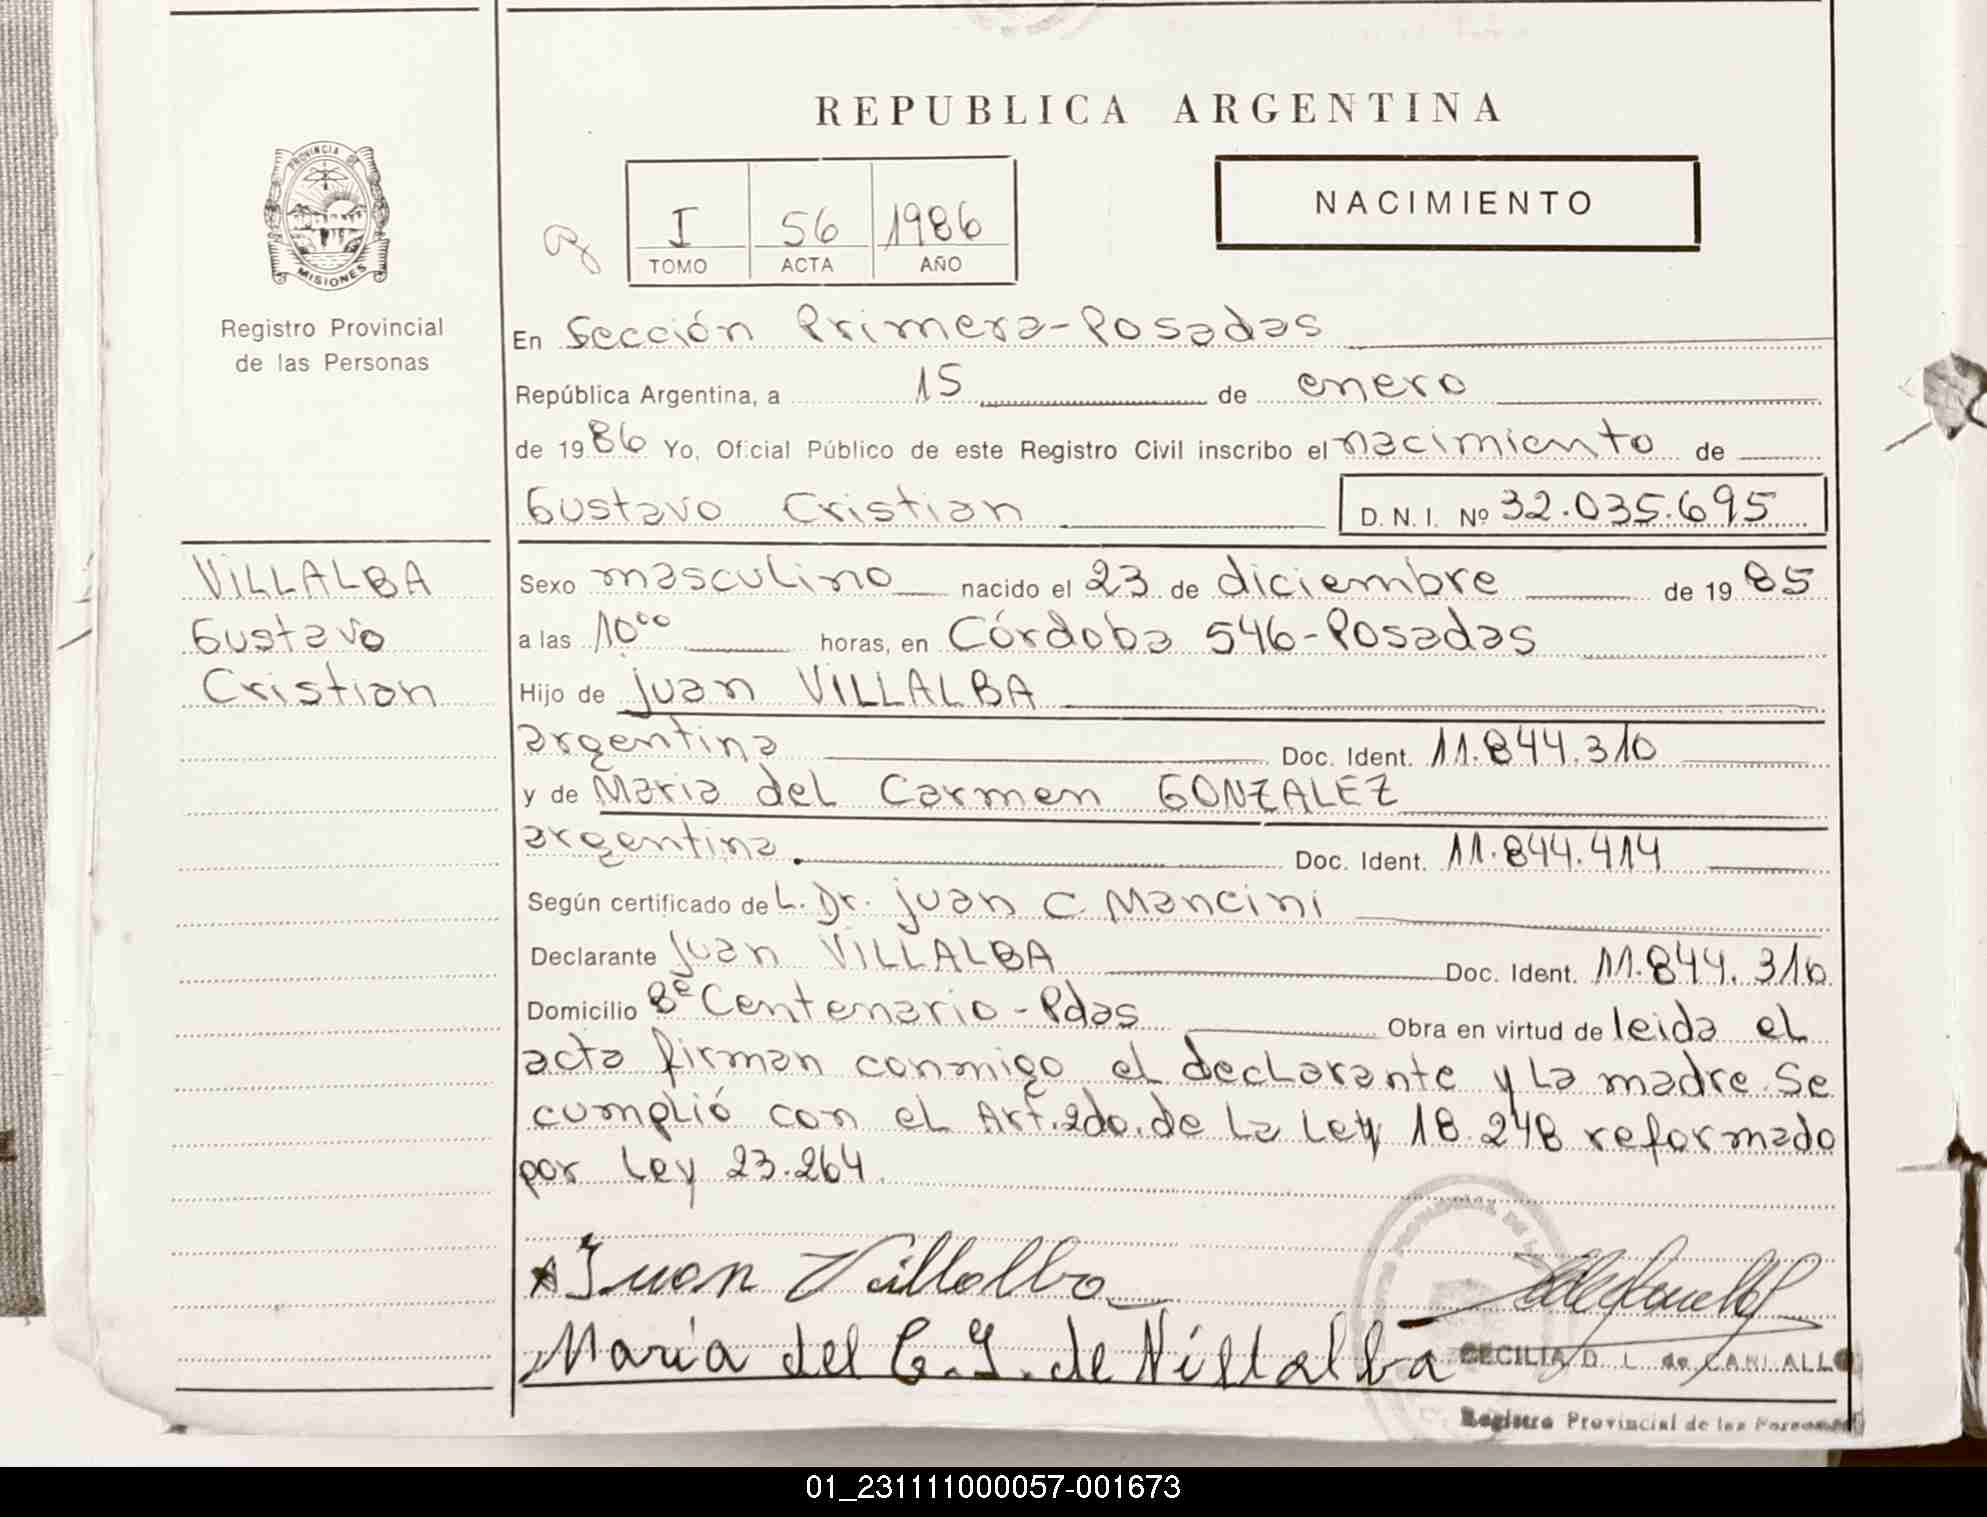 REPUBLICA ARGENTINA
PROVINCIA DE
MISIONES
Registro Provincial
de las Personas
I 56 1986
TOMO ACTA AÑO
NACIMIENTO
En Sección Primera-Posadas
República Argentina, a 15 de enero
de 1986 Yo, Oficial Público de este Registro Civil inscribo el nacimiento de
Gustavo Cristian D.N.I. Nº 32.035.695
VILLALBA
Gustavo
Cristian
Sexo masculino nacido el 23 de diciembre de 1985
a las 10⁰⁰ horas, en Córdoba 546-Posadas
Hijo de Juan VILLALBA
argentina Doc. Ident. 11.844.310
y de Maria del Carmen GONZALEZ
argentina Doc. Ident. 11.844.414
Según certificado de L. Dr. Juan C Mancini
Declarante Juan VILLALBA Doc. Ident. 11.844.310
Domicilio Bº Centenario-Pdas Obra en virtud de leida el
acta firman conmigo el declarante y la madre. Se
cumplió con el Art. 2do. de la Ley 18.248 reformado
por Ley 23.264.
Juan Villalba
Maria del C. G. de Villalba
CECILIA D. L. de
Registro Provincial de las Personas
01_231111000057-001673